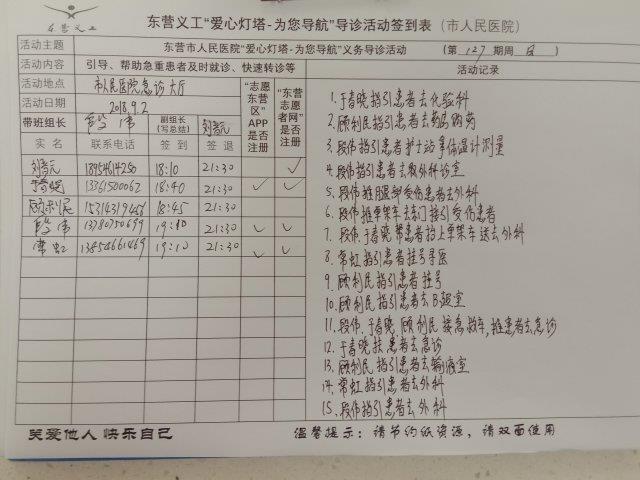 东营义工
东营义工“爱心灯塔-为您导航”导诊活动签到表（市人民医院）
活动主题 东营市人民医院“爱心灯塔-为您导航”义务导诊活动 （第127期周日）
活动内容 引导、帮助急重患者及时就诊、快速转诊等 活动记录
活动地点 市人民医院急诊大厅
活动日期 2018.9.2
带班组长 段伟 副组长（写总结） 刘春元
“志愿东营区”APP是否注册
“东营志愿者网”是否注册
实名 联系电话 签到 签退
刘春元 18:10 21:30 ✓
于春晓 13361500062 18:40 21:30 ✓ ✓
顾利民 18:45 21:30
段伟 13780750699 19:10 21:30 ✓ ✓
常虹 13854661469 19:10 21:30 ✓ ✓
1. 于春晓指引患者去化验科
2. 顾利民指引患者去药房购药
3. 段伟指引患者护士站拿体温计测量
4. 段伟指引患者去取外科诊室
5. 段伟推腿部受伤患者去外科
6. 段伟推平车去门接引受伤患者
7. 段伟、于春晓帮患者抬上平架车送去外科
8. 常虹指引患者挂号寻医
9. 顾利民指引患者挂号
10. 顾利民指引患者去B超室
11. 段伟、于春晓、顾利民接急救车,推患者去急诊
12. 于春晓扶患者去急诊
13. 顾利民指引患者去输液室
14. 常虹指引患者去外科
15. 段伟指引患者去外科
关爱他人 快乐自己 温馨提示：请节约纸资源，请双面使用